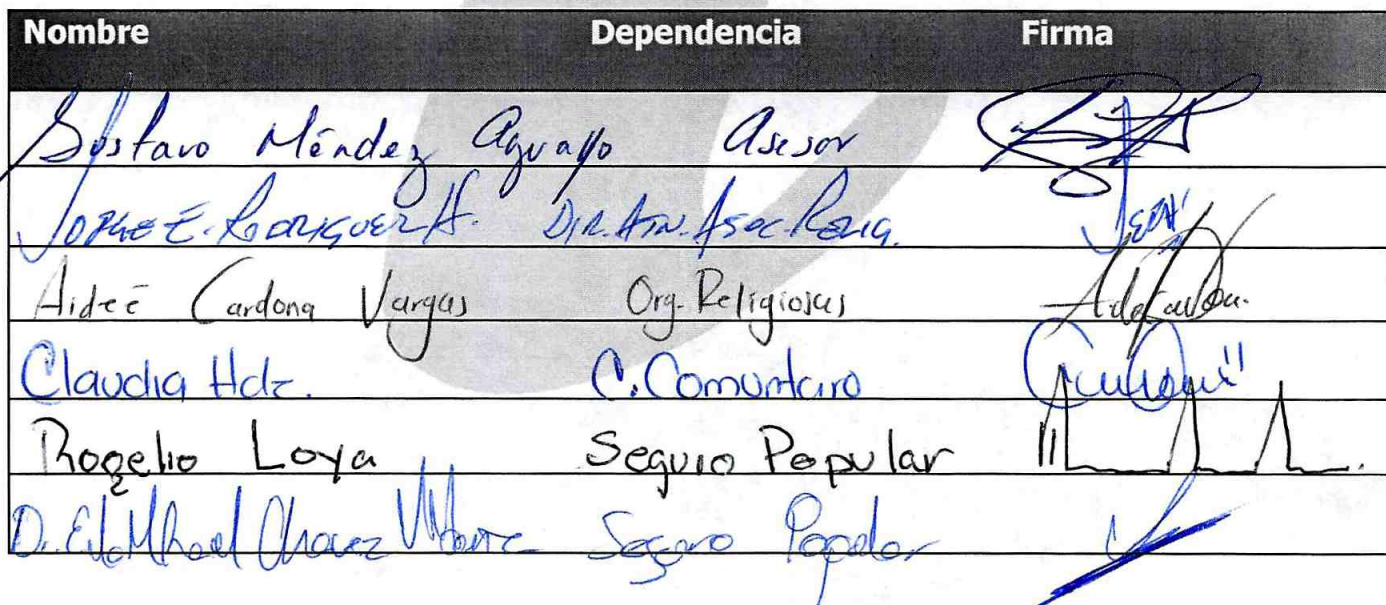 Nombre Dependencia Firma
Gustavo Méndez Aguayo Asesor
JORGE E. RODRIGUEZ A. DIR. ATN. ASOC. RELIG.
Aideé Cardona Vargas Org. Religiosas
Claudia Hdz. C. Comunitario
Rogelio Loya Seguro Popular
Dr. Chavez Seguro Popular